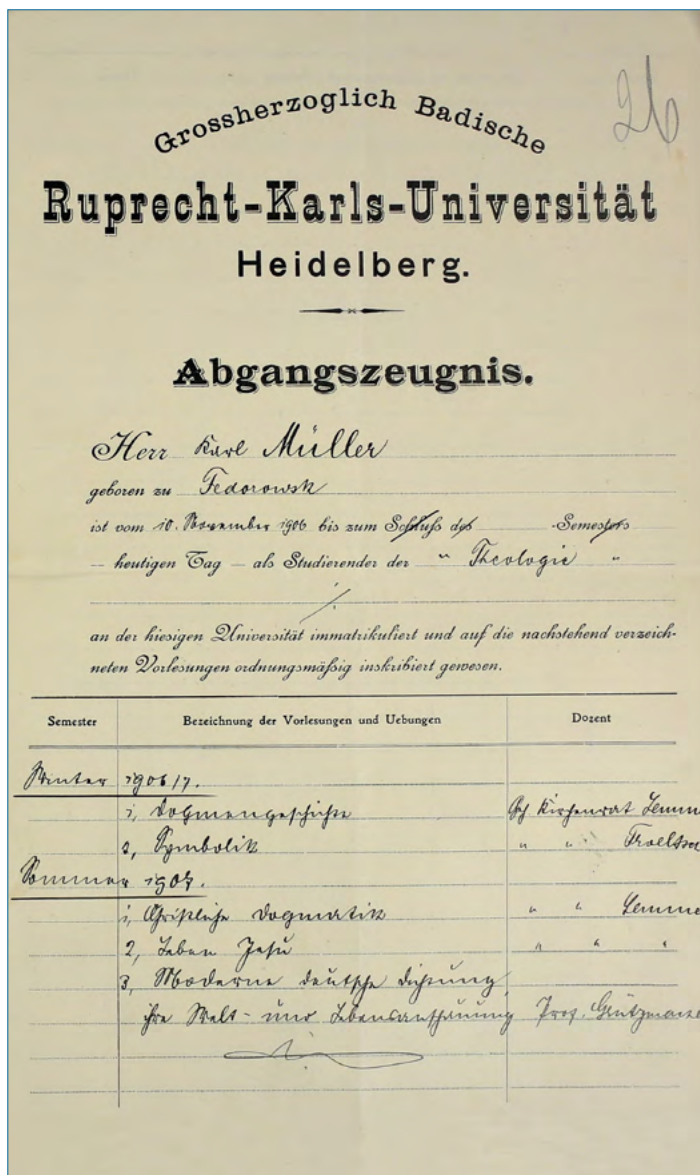 26
Grossherzoglich Badische
Ruprecht-Karls-Universität
Heidelberg.
Abgangszeugnis.
Herr Karl Müller
geboren zu Fedorowsk
ist vom 10. November 1906 bis zum Schluß des -Semesters
– heutigen Tag – als Studierender der „ Theologie "
an der hiesigen Universität immatrikuliert und auf die nachstehend verzeich-
neten Vorlesungen ordnungsmäßig inskribiert gewesen.
Semester Bezeichnung der Vorlesungen und Uebungen Dozent
Winter 1906/7.
1, Dogmengeschichte Geh Kirchenrat Lemm
2, Symbolik " " Troeltsc
Sommer 1907.
1, Christliche Dogmatik " " Lemme
2, Leben Jesu " " "
3, Moderne deutsche Dichtung,
ihre Welt- und Lebensanschauung Prof. Grützmache